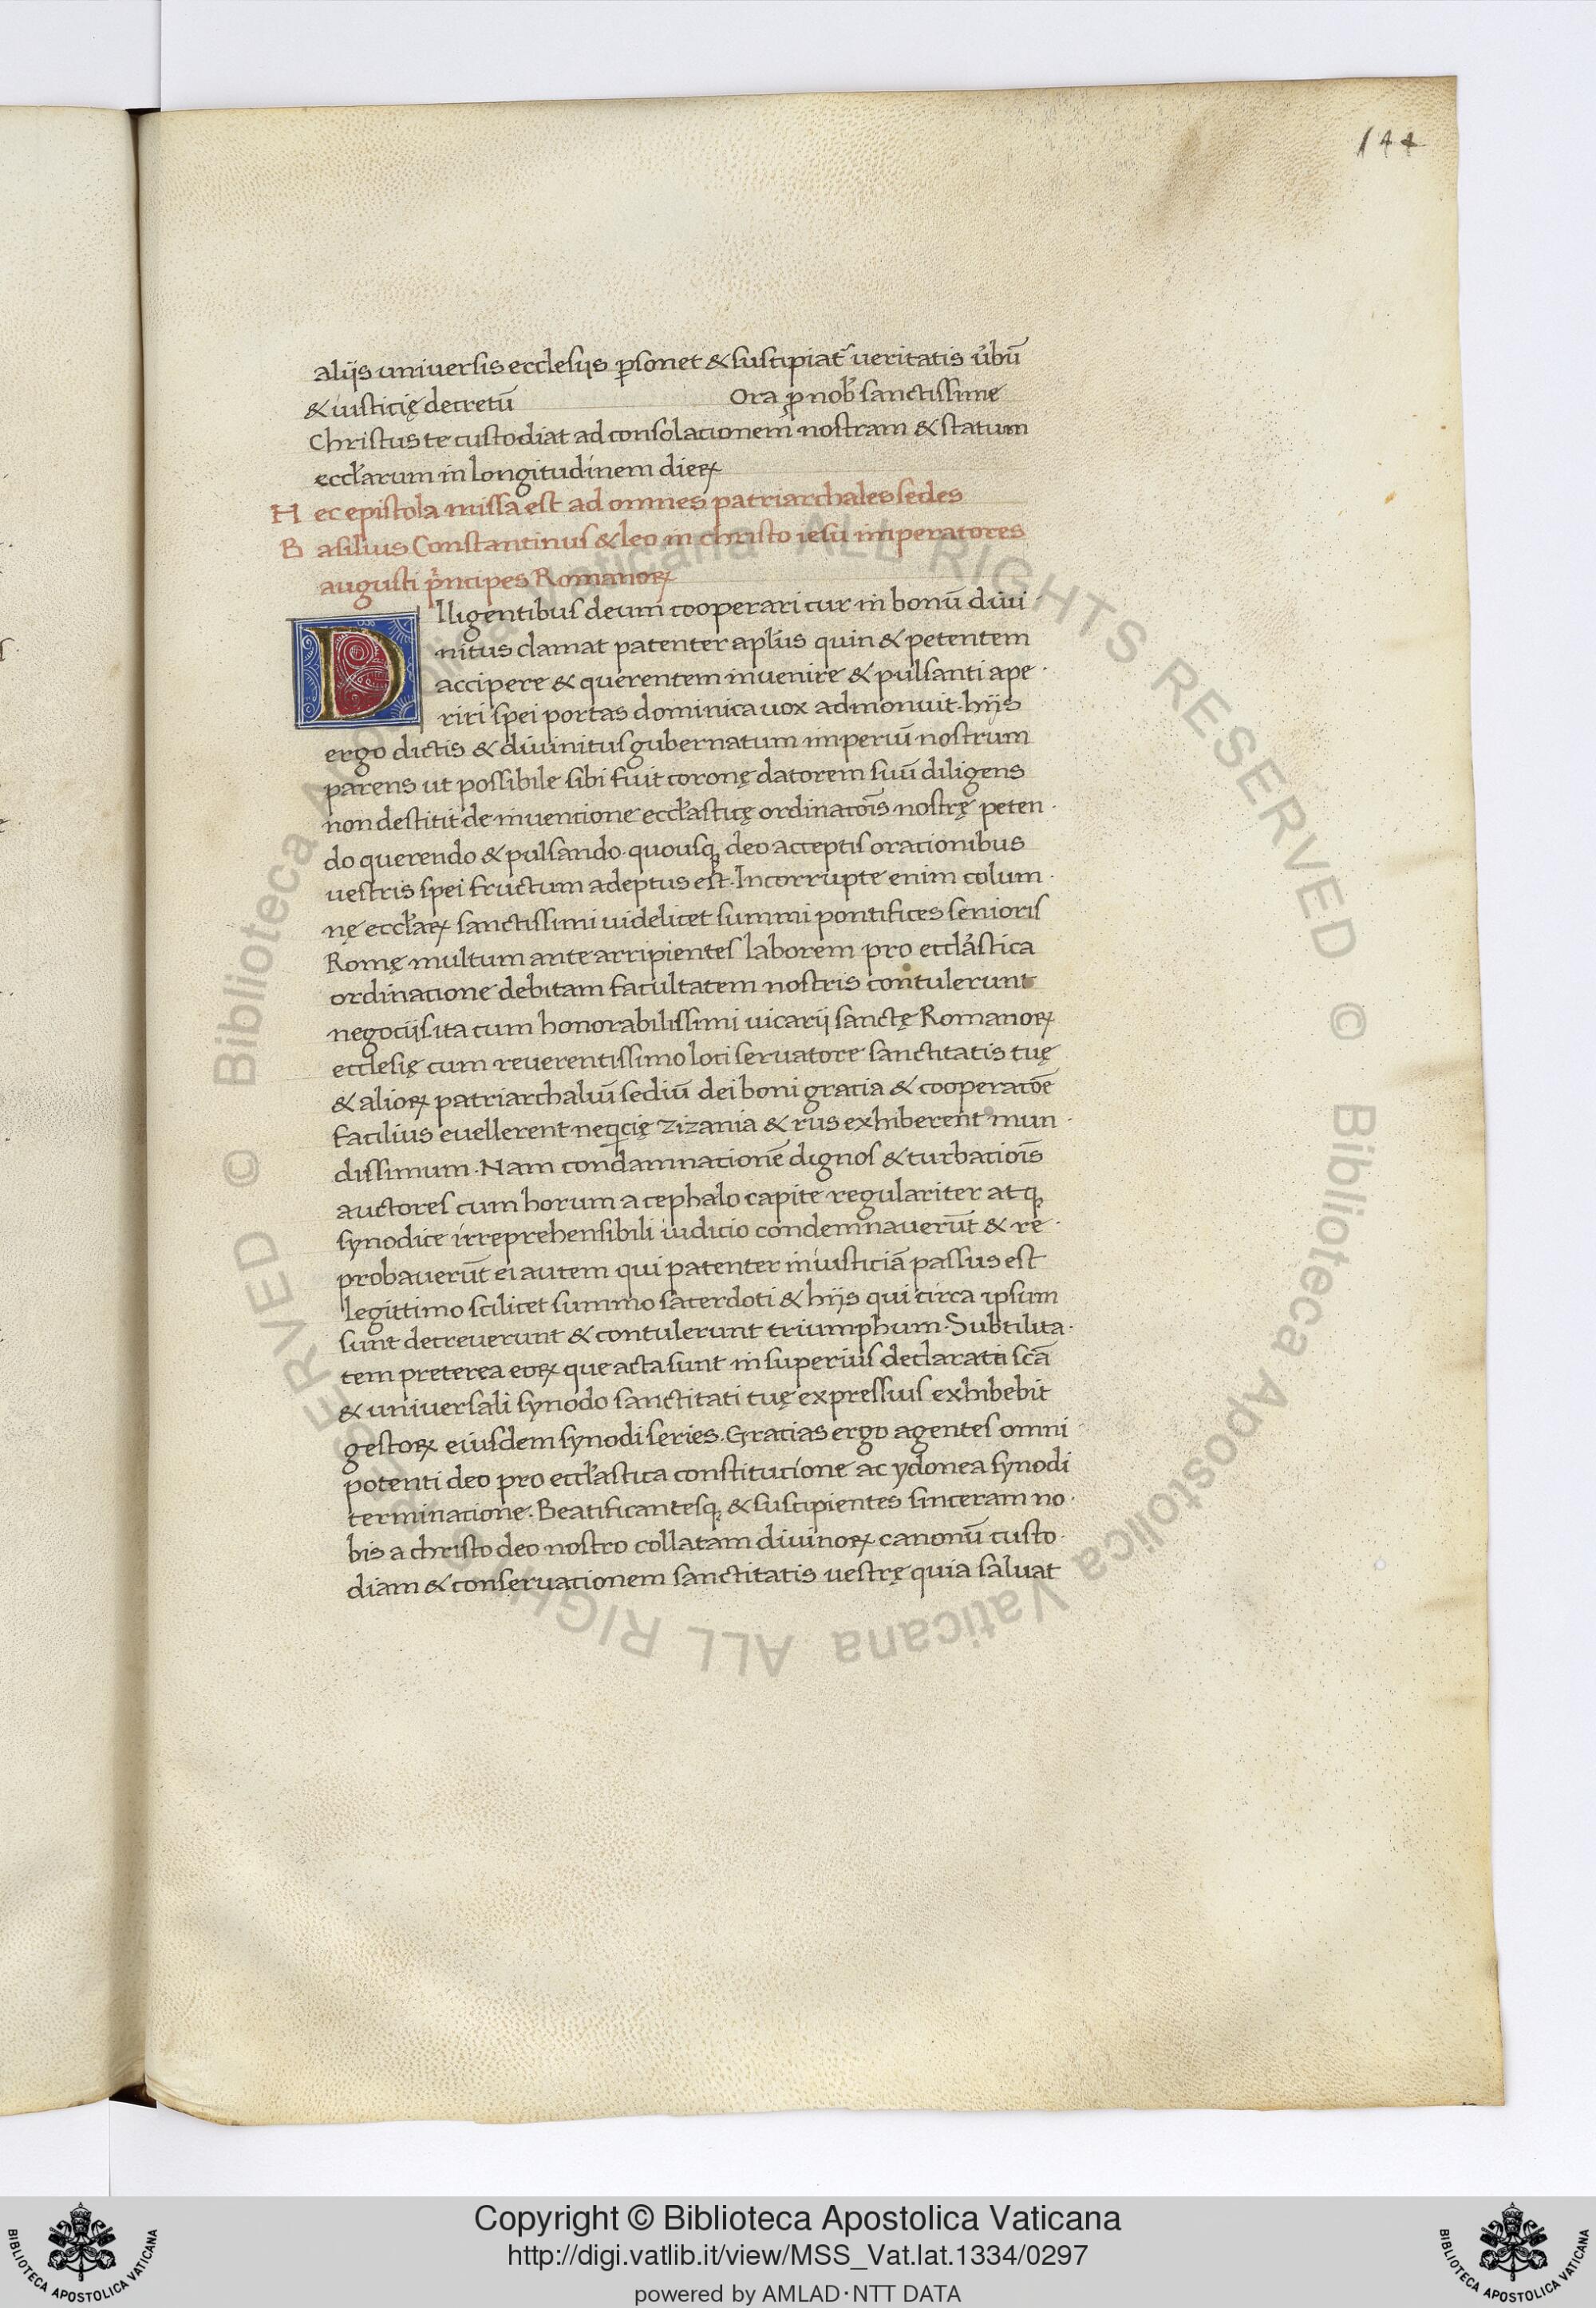 144
alijs universis ecclesijs ꝑsonet & suscipiat᷑ veritatis v̓bū
& iusticię decretū Ora ꝓ nob̓ sanctissime
Christus te custodiat ad consolacionem nostram & statum
eccl̓arum in longitudinem dieꝝ
Hec epistola missa est ad omnes patriarchales sedes
Basilius Constantinus & leo in christo iesu imperatores
augusti p̓ncipes Romanoꝝ
Diligentibus deum cooperaricur in bonū divi
nitus clamat patenter apl̓us quin & petentem
accipere & querentem invenire & pulsanti ape
riri spei portas dominica vox admonuit. hijs
ergo dictis & divinitus gubernatum imperiū nostrum
parens ut possibile sibi fuit coronę datorem suū diligens
non destitit de inventione eccl̓asticę ordinatōis nostrę peten
do querendo & pulsando. quousq̨ deo acceptis oracionibus
vestris spei fructum adeptus est. Incorrupte enim colum
nę eccl̓aꝝ sanctissimi videlicet summi pontifices senioris
Romę multum ante arripientes laborem pro eccl̓astica
ordinacione debitam facultatem nostris contulerunt
negociis. ita cum honorabilissimi vicarij sanctę Romanoꝝ
ecclesię cum reverentissimo loci servatore sanctitatis tuę
& alioꝝ patriarchaliū sediū dei boni gracia & cooperatōe
facilius evellerent neq̇cię zizania & rus exhiberent mun
dissimum. Nam condamnacionē dignos & turbaciōis
auctores cum horum acephalo capite regulariter atq̨
synodice irreprehensibili iudicio condemnaverūt & re
probaverūt ei autem qui patenter iniusticiā passus est
legittimo scilicet summo sacerdoti & hijs qui circa ipsum
sunt decreverunt & contulerunt triumphum. Subtilita
tem preterea eoꝝ que acta sunt in superius declarata scā
& universali synodo sanctitati tuę expressius exhibebit
gestoꝝ eiusdem synodi series. Gracias ergo agentes omni
potenti deo pro eccl̓astica constitucione ac ydonea synodi
terminacione. Beatificantesq̨ & suscipientes sinceram no
bis a christo deo nostro collatam divinoꝝ canonū custo
diam & conservacionem sanctitatis vestrę quia salvat
© Biblioteca Apostolica Vaticana ALL RIGHTS RESERVED © Biblioteca Apostolica Vaticana ALL RIGHTS RESERVED
Copyright © Biblioteca Apostolica Vaticana
http://digi.vatlib.it/view/MSS_Vat.lat.1334/0297
powered by AMLAD·NTT DATA
BIBLIOTECA APOSTOLICA VATICANA
BIBLIOTECA APOSTOLICA VATICANA